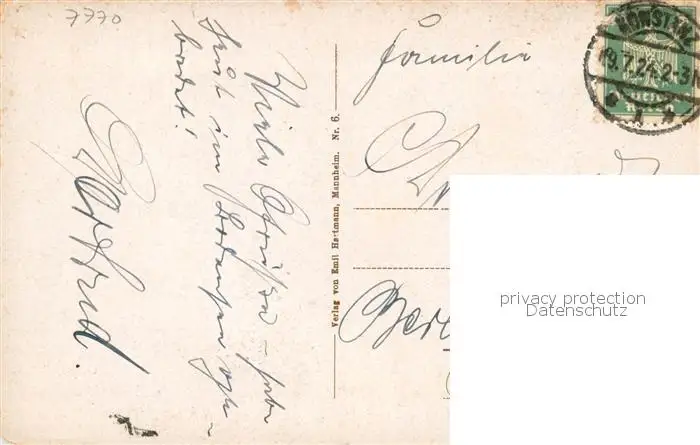 7770
Viele Grüße – habe
heut im Bodensee ge-
badet!
Gertrud.
Verlag von Emil Hartmann, Mannheim. Nr. 6.
Familie
KONSTANZ
19.7.24. 2-3
privacy protection
Datenschutz